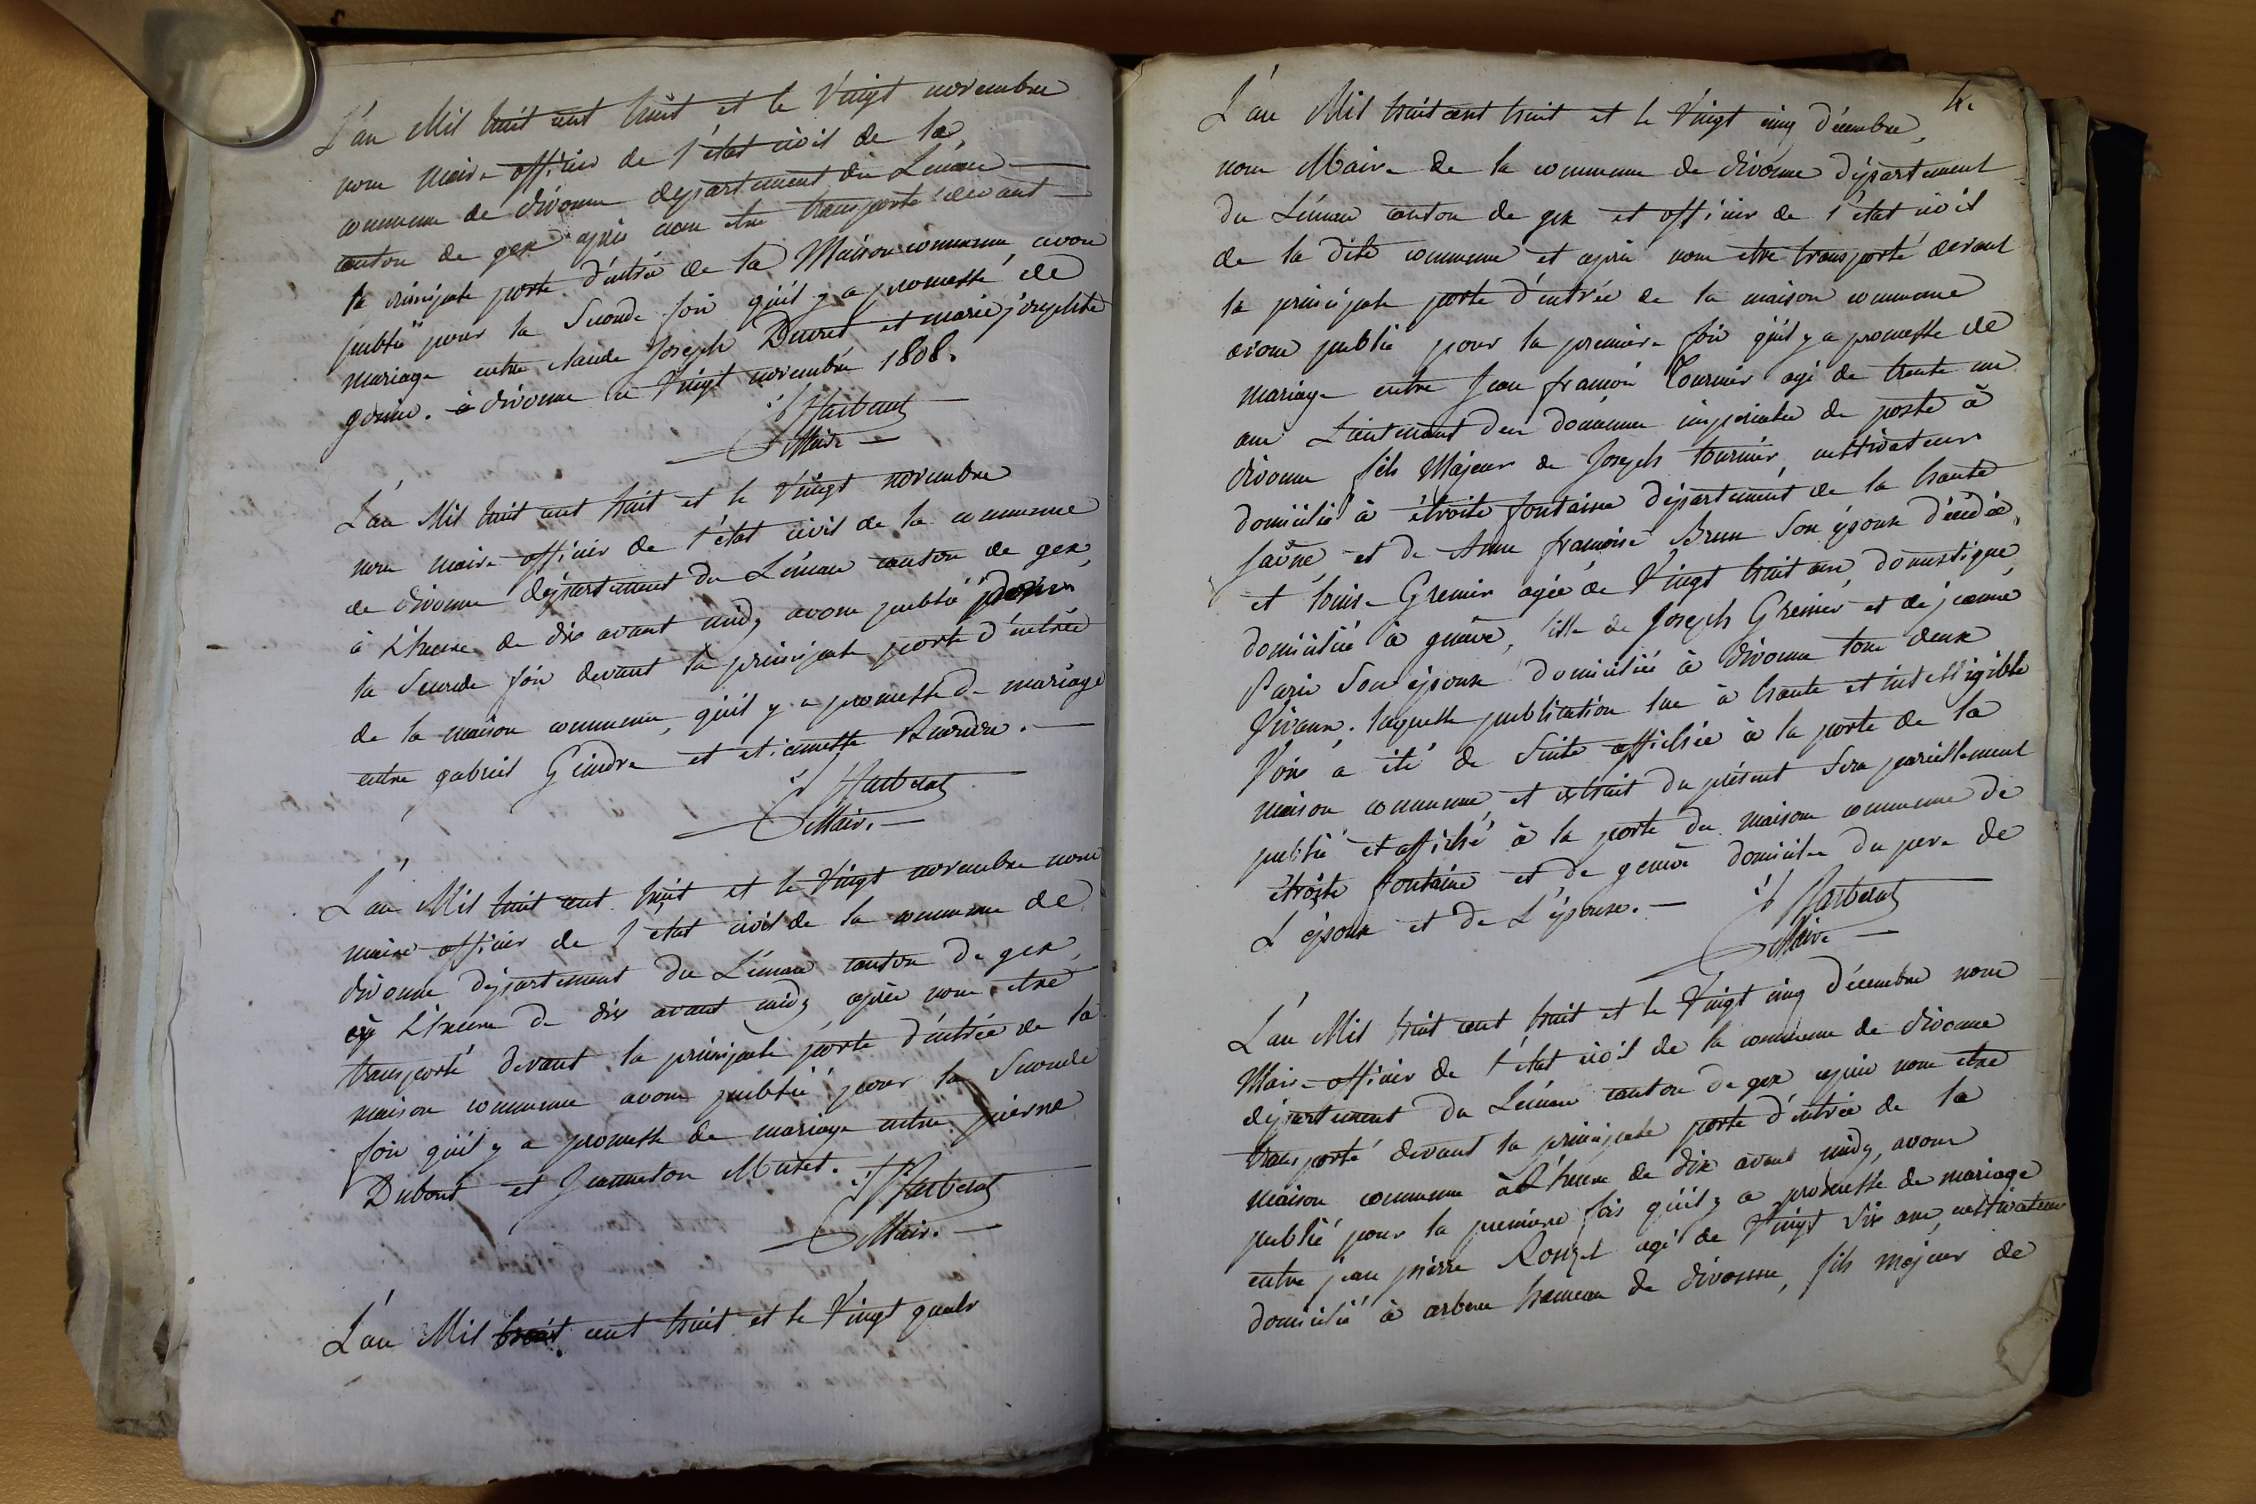 L'an Mil huit cent huit et le Vingt novembre
nous maire officier de l'état civil de la
commune de divonne département du Léman
canton de gex après nous etre transporté devant
la principale porte d'entrée de la Maison commune, avons
publié pour la Seconde fois qu'il y a promesse de
mariage entre claude Joseph Duvret et marie josephte
à divonne ce Vingt novembre 1808.
Maire
L'an Mil huit cent huit et le Vingt novembre
nous maire officier de l'état civil de la commune
de divonne département du Léman canton de gex,
à L'heure de dix avant midy avons publié pour
la Seconde fois devant la principale porte d'entrée
de la maison commune, qu'il y a promesse de mariage
entre gabriel Gindre et
Maire.
L'an Mil huit cent huit et le Vingt novembre nous
maire officier de l'état civil de la commune de
divonne département du Léman canton de gex,
à L'heure de dix avant midy après nous etre
transporté devant la principale porte d'entrée de la
maison commune avons publié pour la Seconde
fois qu'il y a promesse de mariage entre pierre
Dubout et Jeanneton Mutet.
Maire.
L'an Mil huit cent huit et le Vingt quatr
L'an Mil huit cent huit et le Vingt cinq décembre,
nous Maire de la commune de divonne département
du Léman canton de gex et officier de l'état civil
de la dite commune et après nous etre transporté devant
la principale porte d'entrée de la maison commune
avons publié pour la première fois qu'il y a promesse de
mariage entre Jean françois Tournier agé de trente un
ans Lieutenant des douannes imperiales de poste à
divonne fils Majeur de Joseph tournier, cultivateur
domicilié à étroite fontaine département de la haute
saône, et de Anne françoise Brun Son épouse décédée,
et louise Grenier agée de Vingt huit ans, domestique,
domiciliée à genève, fille de Joseph Grenier et de jeanne
Paris Son épouse domiciliés à divonne tous deux
Vivans. laquelle publication lue à haute et intelligible
Voix a été de Suite affichée à la porte de la
maison commune, et extrait du présent Sera pareillement
publié et affiché à la porte des maisons commune de
étroite fontaine et de genève domicile du pere de
L'époux et de L'épouse.
Maire
L'an Mil huit cent huit et le Vingt cinq décembre nous
Maire officier de l'état civil de la commune de divonne
département du Léman canton de gex après nous etre
transporté devant la principale porte d'entrée de la
maison commune à L'heure de dix avant midy, avons
publié pour la première fois qu'il y a promesse de mariage
entre jean pierre Rouzet agé de Vingt Six ans, cultivateur
domicilié à arbere hameau de divonne, fils majeur de